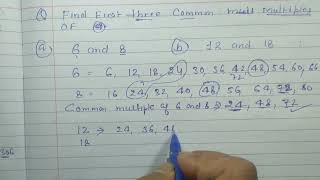 Q Find First three Common Multiples
OF
(a) 6 and 8 (b) 12 and 18
6 = 6, 12, 18, 24, 30, 36, 42, 48, 54, 60, 66
72
8 = 16, 24, 32, 40, 48, 56, 64, 72, 80
Common multiple of 6 and 8 ⇒ 24, 48, 72
12 ⇒ 24, 36, 48
18